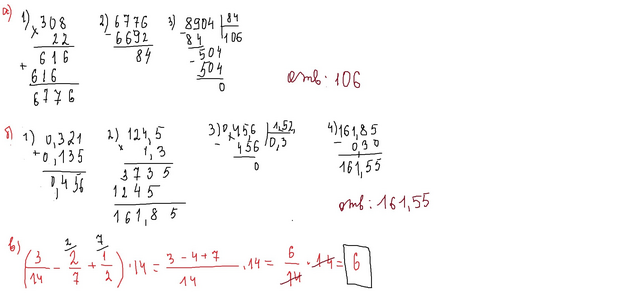 а)
1) × 308
22
616
+ 616
6776
2) 6776
- 6692
84
3) - 8904 | 84
84 106
- 504
504
0
отв. 106
б)
1) 0,321
+ 0,135
0,456
2) 124,5
× 1,3
3735
1245
161,85
3) 0,456 | 1,52
- 456 0,3
0
4) 161,85
- 0,30
161,55
отв: 161,55
в) (3/14 - 2/7 + 1/2) · 14 = (3-4+7)/14 · 14 = 6/14 · 14 = 6